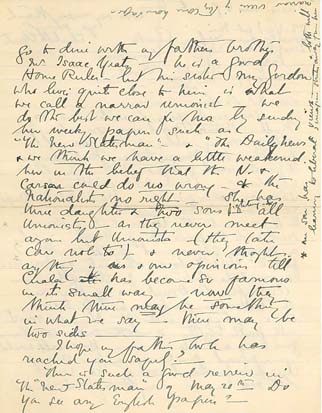 Go to dine with my fathers brother
Mr Isaac Yeats. he is a good
Home Ruler but his sister Mrs Gordon
who lives quite close to him is what
we call a narrow unionist. We
do the best we can for her by sending
her weekly papers such as
"The New Statesman" & "The Daily News"
& we think we have a little weakened
her in the belief that the N. &
Carson could do no wrong & the
Nationalists no right — She has
three daughters & two sons all
Unionists as they never meet
again but Unionists (they take
care not to) & never thought
anything our opinions till
Cuala has become so famous
in its small way — now they
think there may be something
in what we say — there may be
two sides —
I hope my father's book has
reached you safely?
There is such a good review in
The "New Statesman" of May 20th Do
you see any English papers?
* one son has
leaning to liberal views